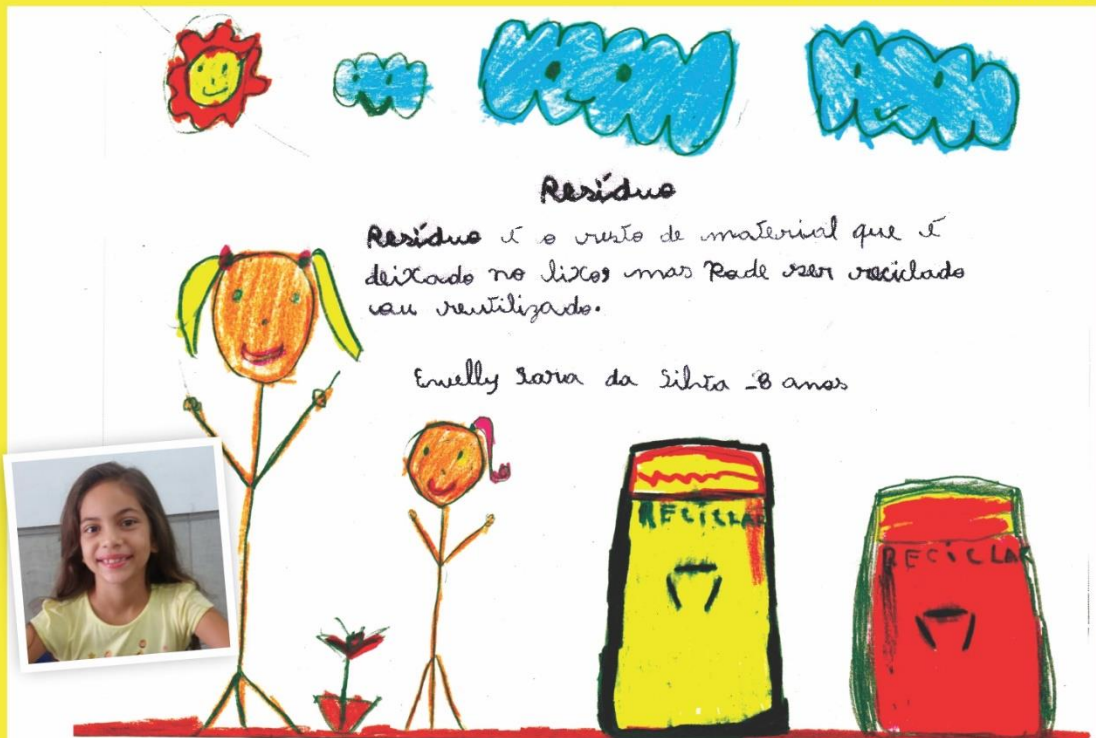 Resíduo
Resíduo é o resto de material que é
deixado no lixo, mas Pode ser reciclado
ou reutilizado.
Emelly Sara da Silva - 8 anos
RECICLAR
RECICLAR